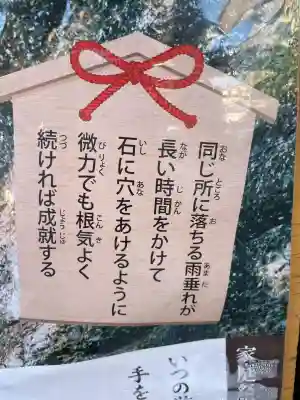 同じ所に落ちる雨垂れが
長い時間をかけて
石に穴をあけるように
微力でも根気よく
続ければ成就する
いつの
手を